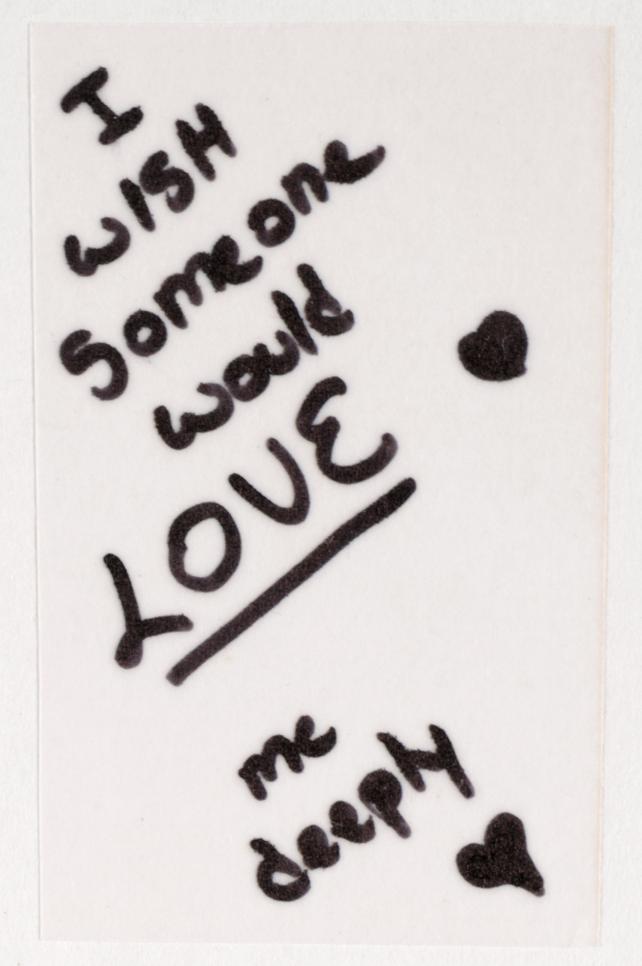 I
WISH
Someone
would
LOVE
me
deeply